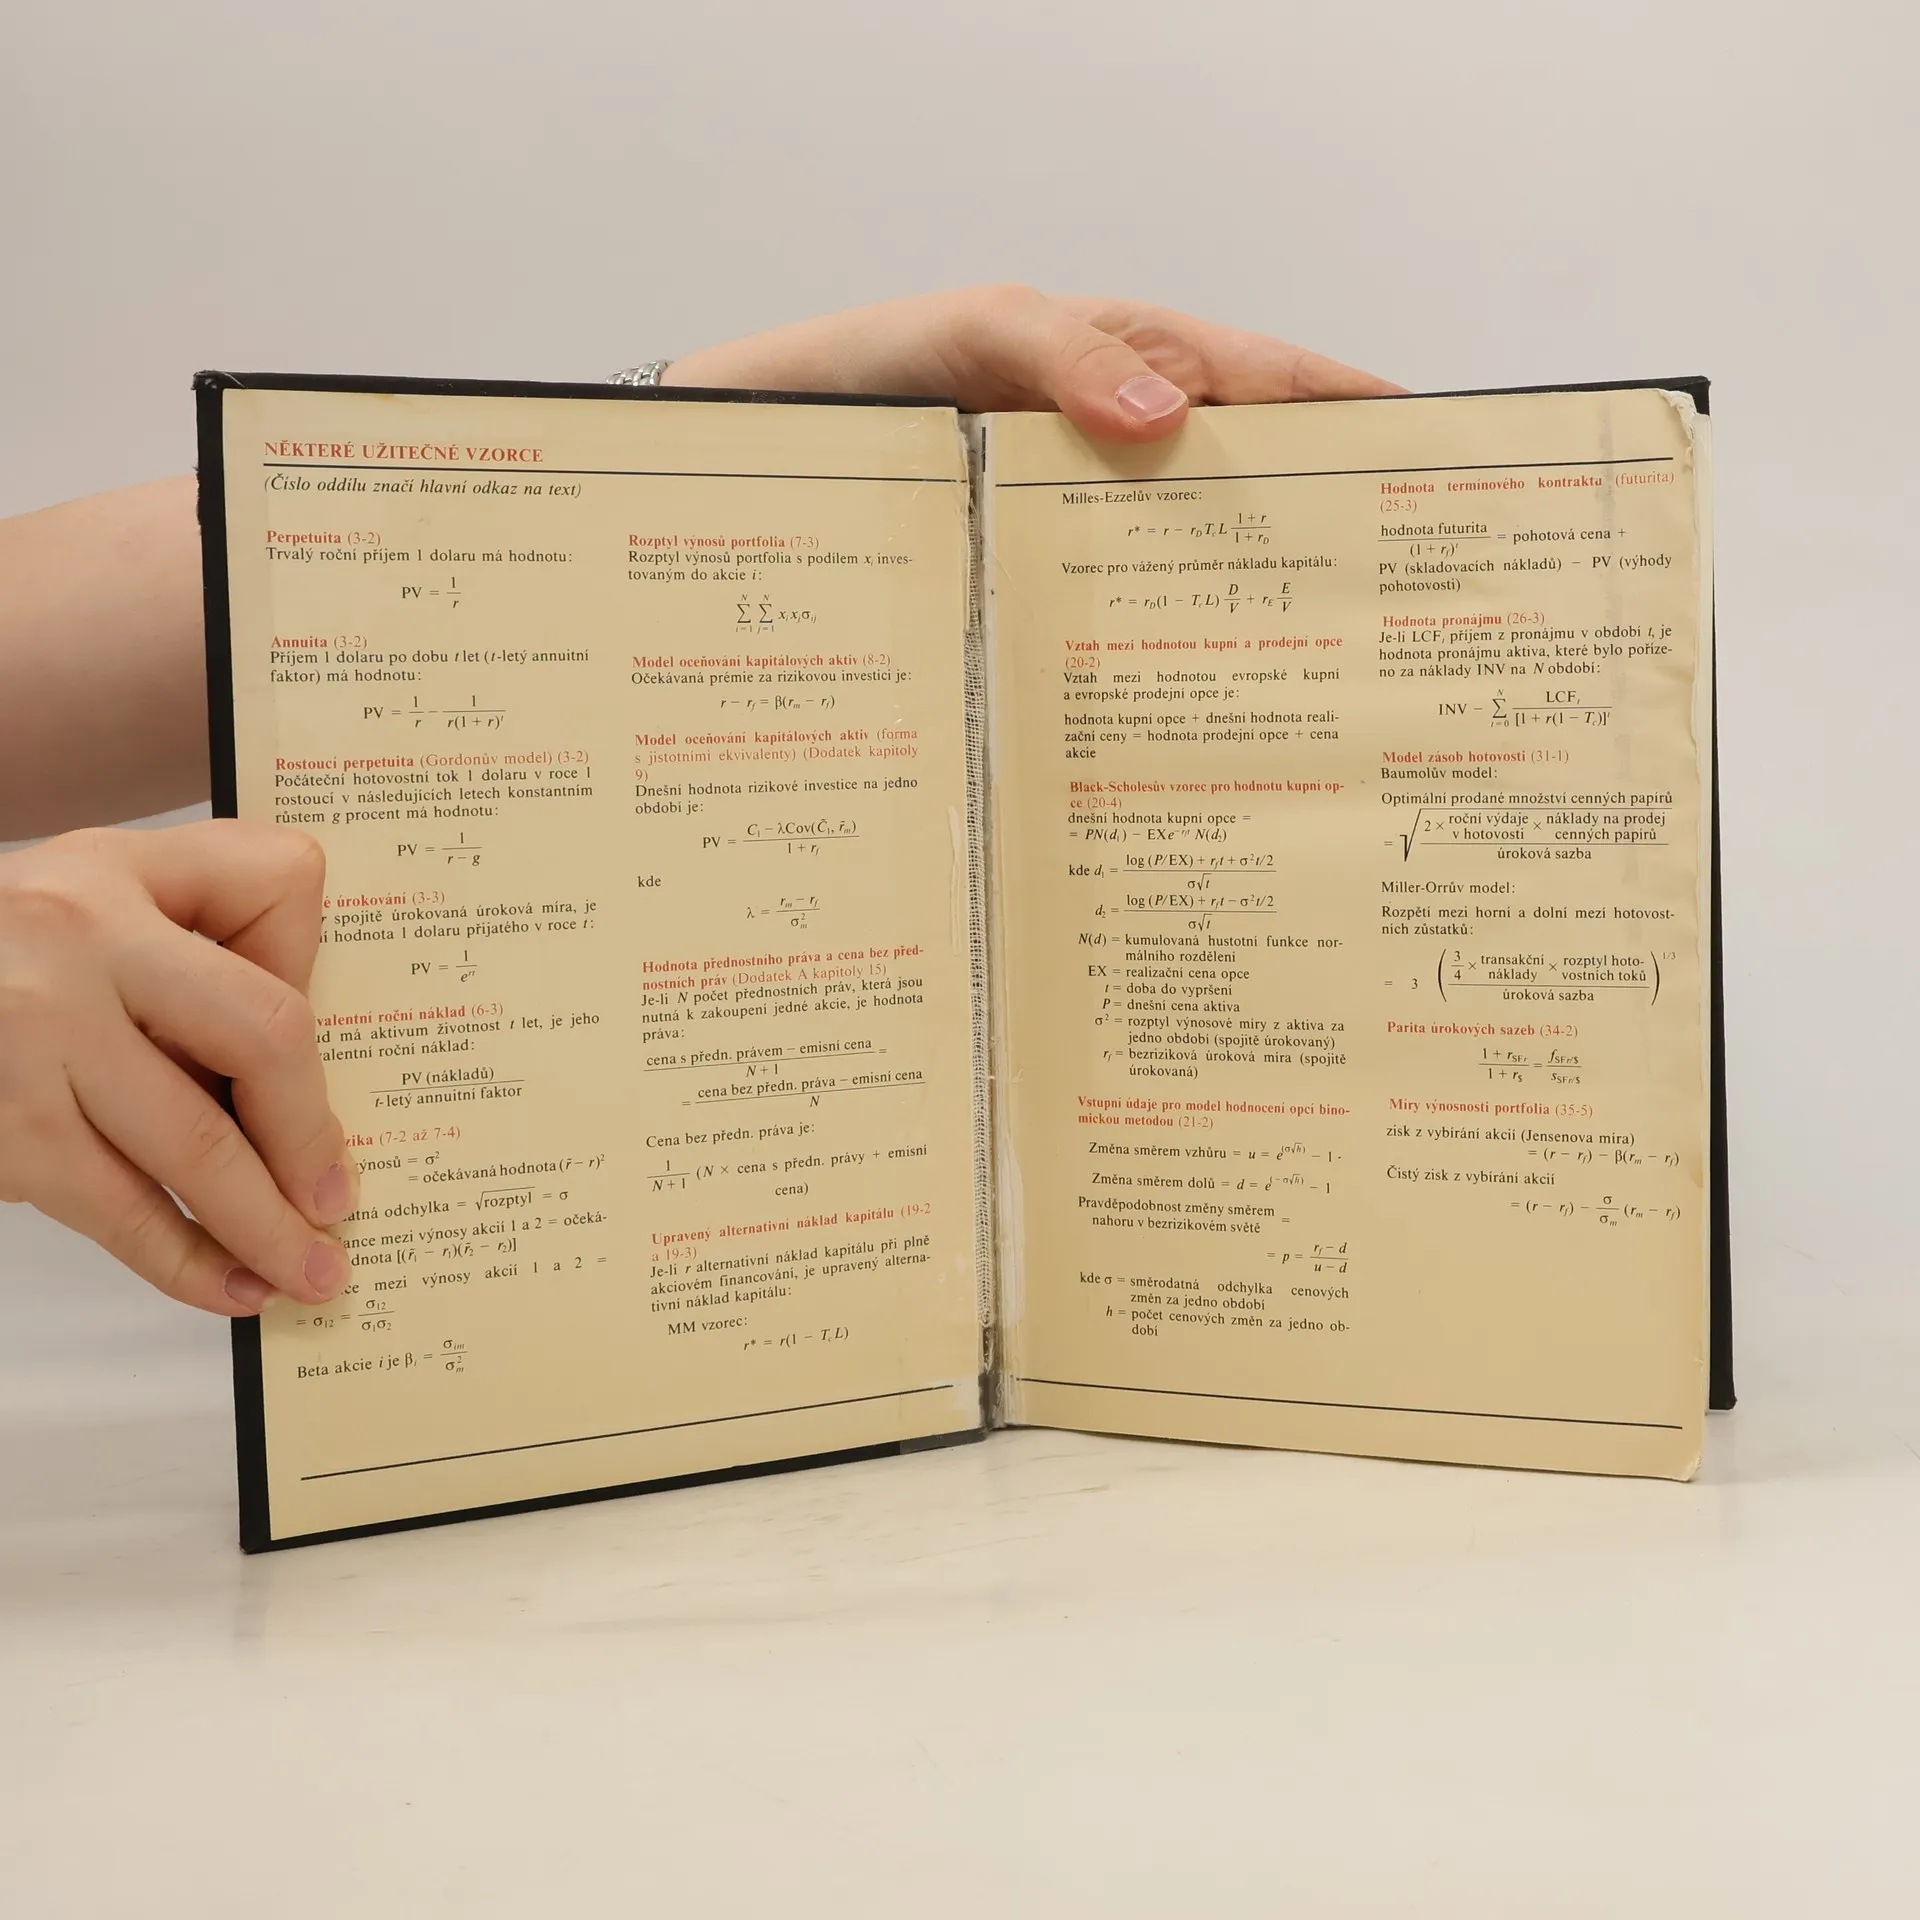 NĚKTERÉ UŽITEČNÉ VZORCE
(Číslo oddílu značí hlavní odkaz na text)
Perpetuita (3-2)
Trvalý roční příjem 1 dolaru má hodnotu:
PV = 1/r
Annuita (3-2)
Příjem 1 dolaru po dobu t let (t-letý annuitní
faktor) má hodnotu:
PV = 1/r − 1/(r(1 + r)^t)
Rostoucí perpetuita (Gordonův model) (3-2)
Počáteční hotovostní tok 1 dolaru v roce 1
rostoucí v následujících letech konstantním
růstem g procent má hodnotu:
PV = 1/(r − g)
é úrokování (3-3)
r spojitě úrokovaná úroková míra, je
í hodnota 1 dolaru přijatého v roce t:
PV = 1/e^rt
valentní roční náklad (6-3)
ud má aktivum životnost t let, je jeho
valentní roční náklad:
PV (nákladů)
t-letý annuitní faktor
zika (7-2 až 7-4)
ýnosů = σ²
= očekávaná hodnota (r̃ − r)²
atná odchylka = √rozptyl = σ
ance mezi výnosy akcií 1 a 2 = očeká-
dnota [(r̃₁ − r₁)(r̃₂ − r₂)]
ce mezi výnosy akcií 1 a 2 =
= σ₁₂ = σ₁₂/(σ₁σ₂)
Beta akcie i je βᵢ = σᵢₘ/σ²ₘ
Rozptyl výnosů portfolia (7-3)
Rozptyl výnosů portfolia s podílem xᵢ inves-
tovaným do akcie i:
∑(i=1 až N) ∑(j=1 až N) xᵢxⱼσᵢⱼ
Model oceňování kapitálových aktiv (8-2)
Očekávaná prémie za rizikovou investici je:
r − r_f = β(r_m − r_f)
Model oceňování kapitálových aktiv (forma
s jistotními ekvivalenty) (Dodatek kapitoly
9)
Dnešní hodnota rizikové investice na jedno
období je:
PV = (C₁ − λCov(C̃₁, r̃_m))/(1 + r_f)
kde
λ = (r_m − r_f)/σ²_m
Hodnota přednostního práva a cena bez před-
nostních práv (Dodatek A kapitoly 15)
Je-li N počet přednostních práv, která jsou
nutná k zakoupení jedné akcie, je hodnota
práva:
cena s předn. právem − emisní cena =
N + 1
= cena bez předn. práva − emisní cena
N
Cena bez předn. práva je:
1/(N + 1) (N × cena s předn. právy + emisní
cena)
Upravený alternativní náklad kapitálu (19-2
a 19-3)
Je-li r alternativní náklad kapitálu při plně
akciovém financování, je upravený alterna-
tivní náklad kapitálu:
MM vzorec:
r* = r(1 − T_c L)
Milles-Ezzelův vzorec:
r* = r − r_D T_c L (1 + r)/(1 + r_D)
Vzorec pro vážený průměr nákladu kapitálu:
r* = r_D(1 − T_c L) D/V + r_E E/V
Vztah mezi hodnotou kupní a prodejní opce
(20-2)
Vztah mezi hodnotou evropské kupní
a evropské prodejní opce je:
hodnota kupní opce + dnešní hodnota reali-
zační ceny = hodnota prodejní opce + cena
akcie
Black-Scholesův vzorec pro hodnotu kupní op-
ce (20-4)
dnešní hodnota kupní opce =
= PN(d₁) − EXe^(−r_f t) N(d₂)
kde d₁ = (log (P/EX) + r_f t + σ²t/2)/(σ√t)
d₂ = (log (P/EX) + r_f t − σ²t/2)/(σ√t)
N(d) = kumulovaná hustotní funkce nor-
málního rozdělení
EX = realizační cena opce
t = doba do vypršení
P = dnešní cena aktiva
σ² = rozptyl výnosové míry z aktiva za
jedno období (spojitě úrokovaný)
r_f = bezriziková úroková míra (spojitě
úrokovaná)
Vstupní údaje pro model hodnocení opcí bino-
mickou metodou (21-2)
Změna směrem vzhůru = u = e^(σ√h) − 1 ·
Změna směrem dolů = d = e^(−σ√h) − 1
Pravděpodobnost změny směrem
nahoru v bezrizikovém světě =
= p = (r_f − d)/(u − d)
kde σ = směrodatná odchylka cenových
změn za jedno období
h = počet cenových změn za jedno ob-
dobí
Hodnota termínového kontraktu (futurita)
(25-3)
hodnota futurita/(1 + r_f)^t = pohotová cena +
PV (skladovacích nákladů) − PV (výhody
pohotovosti)
Hodnota pronájmu (26-3)
Je-li LCF_t příjem z pronájmu v období t, je
hodnota pronájmu aktiva, které bylo poříze-
no za náklady INV na N období:
INV − ∑(t=0 až N) LCF_t/[1 + r(1 − T_c)]^t
Model zásob hotovosti (31-1)
Baumolův model:
Optimální prodané množství cenných papírů
= √ 2 × roční výdaje v hotovosti × náklady na prodej cenných papírů
úroková sazba
Miller-Orrův model:
Rozpětí mezi horní a dolní mezí hotovost-
ních zůstatků:
= 3 (3/4 × transakční náklady × rozptyl hoto-vostních toků
úroková sazba)^1/3
Parita úrokových sazeb (34-2)
(1 + r_SFr)/(1 + r_$) = f_SFr/$ / s_SFr/$
Míry výnosnosti portfolia (35-5)
zisk z vybírání akcií (Jensenova míra)
= (r − r_f) − β(r_m − r_f)
Čistý zisk z vybírání akcií
= (r − r_f) − σ/σ_m (r_m − r_f)